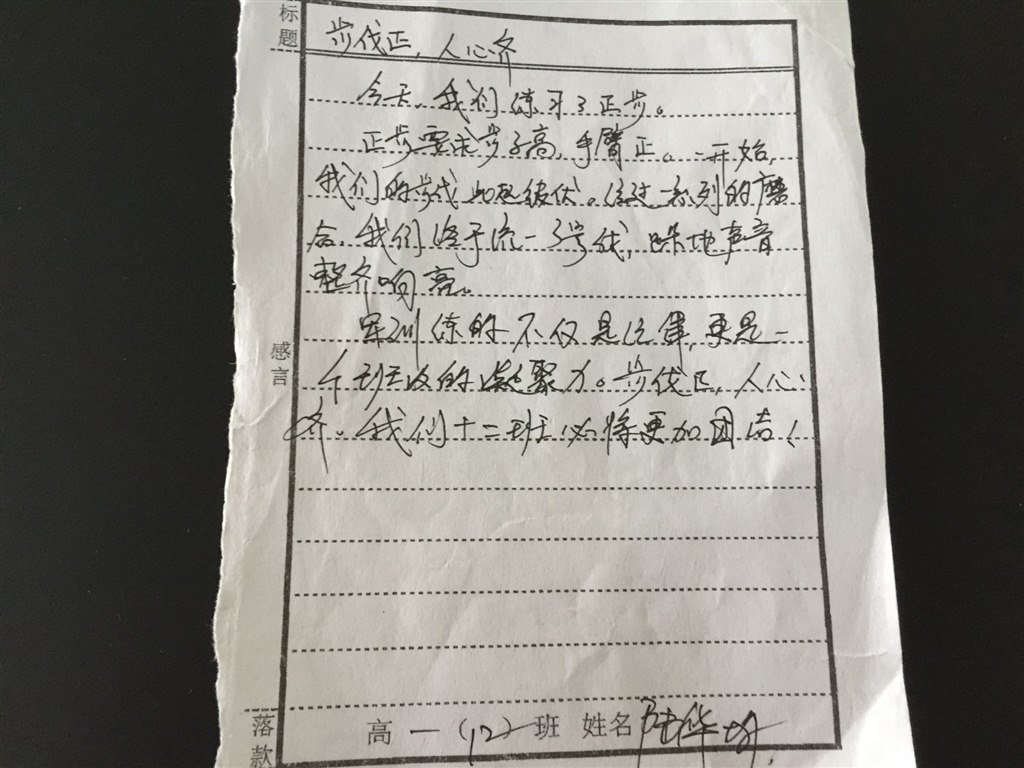 标题
步伐正，人心齐
今天，我们练习了正步。
正步要求步子高，手臂正。一开始，
我们的步伐此起彼伏。经过一系列的磨
合，我们终于统一了步伐，踩地声音
整齐响亮。
军训练的不仅是纪律，更是一
个班级的凝聚力。步伐正，人心
齐。我们十二班必将更加团结！
感言
落款 高一(12)班 姓名 陆华